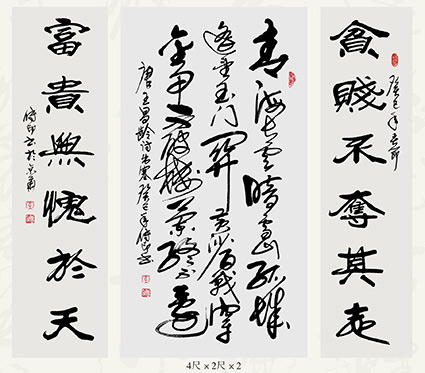 貧賤不奪其志
癸巳年
青海长云暗雪山孤城
遥望玉门關黄沙百戰穿
金甲不破樓蘭終不還
唐王昌齡詩出塞癸巳年
富貴無愧於天
4尺×2尺×2